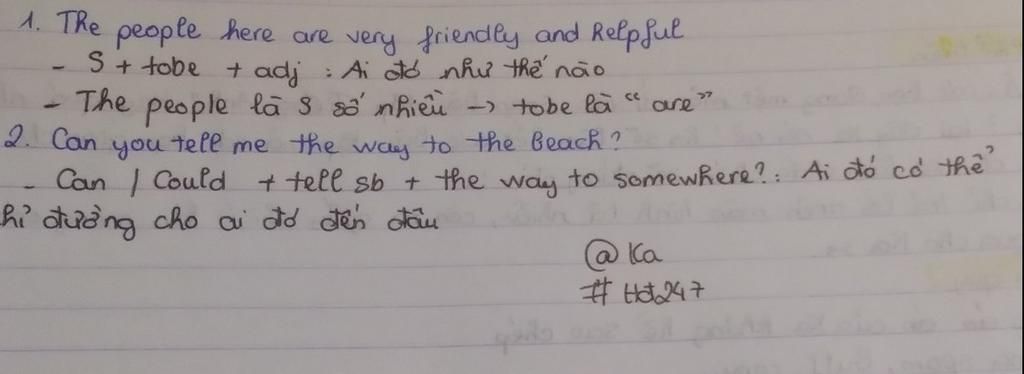 1. The people here are very friendly and helpful
- S + tobe + adj : Ai đó như thế nào
- The people là S số nhiều -> tobe là "are"
2. Can you tell me the way to the beach?
- Can / Could + tell sb + the way to somewhere? : Ai đó có thể
hỉ đường cho ai đó đến đâu
@ Ka
# Hd247